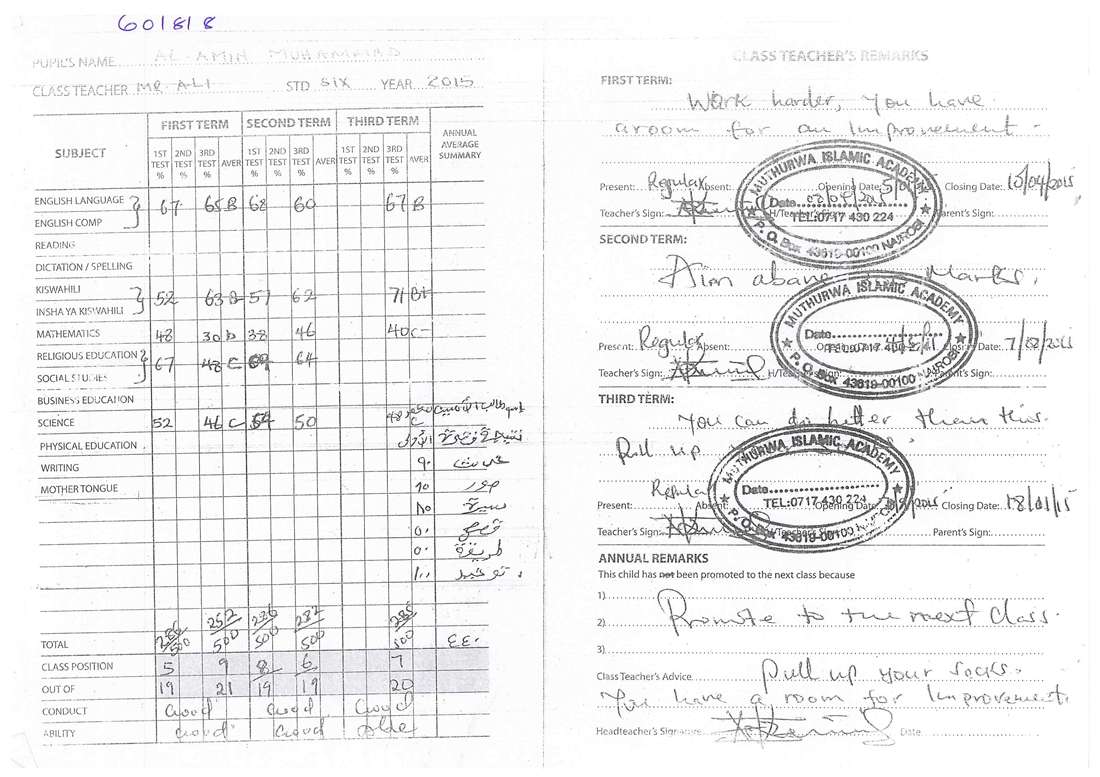 601818
PUPIL'S NAME AL-AMIN MUHAMMAD
CLASS TEACHER MR ALI STD SIX YEAR 2015
SUBJECT FIRST TERM SECOND TERM THIRD TERM ANNUAL AVERAGE SUMMARY
1ST TEST % 2ND TEST % 3RD TEST % AVER 1ST TEST % 2ND TEST % 3RD TEST % AVER 1ST TEST % 2ND TEST % 3RD TEST % AVER
ENGLISH LANGUAGE 67 65 B 68 60 67 B
ENGLISH COMP
READING
DICTATION / SPELLING
KISWAHILI 52 63 B 57 62 71
INSHA YA KISWAHILI
MATHEMATICS 48 30 D 38 46 40 C-
RELIGIOUS EDUCATION 67 48 C 64
SOCIAL STUDIES
BUSINESS EDUCATION
SCIENCE 52 46 C 54 50 48 C
PHYSICAL EDUCATION
WRITING ٩٠
MOTHER TONGUE
٨٠
٥٠
٥٠ طريقة
١٠٠ توحيد
TOTAL 286/500 252/500 276/500 282/500 ٤٤٠
CLASS POSITION 5 9 8 6 7
OUT OF 19 21 19 19 20
CONDUCT Good Good Good
ABILITY Good Good Able
CLASS TEACHER'S REMARKS
FIRST TERM:
Work harder, You have
a room for an Improvement.
Present: Regular Absent: Opening Date: Closing Date: 10/04/2015
Teacher's Sign: Parent's Sign:
MUTHURWA ISLAMIC ACADEMY
Date
TEL:0717 430 224
P. O. Box 43619-00100 NAIROBI
SECOND TERM:
Aim above Marks.
Present: Regular Absent: Closing Date:
Teacher's Sign: Parent's Sign:
MUTHURWA ISLAMIC ACADEMY
Date
TEL:0717 430 224
P. O. Box 43619-00100 NAIROBI
THIRD TERM:
You can do better than this.
Pull up
Present: Regular Absent: Opening Date: Closing Date:
Teacher's Sign: H/Teacher's Parent's Sign:
MUTHURWA ISLAMIC ACADEMY
Date
TEL:0717 430 224
P. O. Box 43619-00100 NAIROBI
ANNUAL REMARKS
This child has not been promoted to the next class because
1)
2) Promote to the next Class.
3)
Class Teacher's Advice Pull up your socks.
You have a room for Improvement.
Headteacher's Signature Date